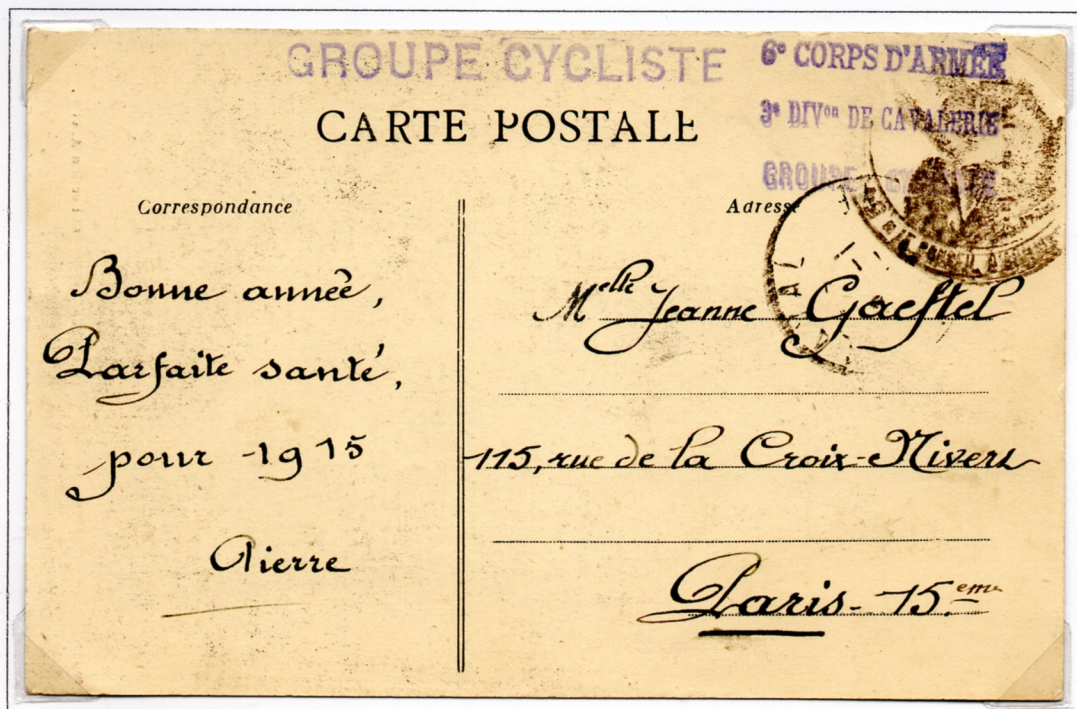 GROUPE CYCLISTE
6e CORPS D'ARMÉE
3e DIVon DE CAVALERIE
GROUPE
CARTE POSTALE
Correspondance
Adresse
Bonne année,
Parfaite santé,
pour 1915
Pierre
Melle Jeanne Gaestel
115, rue de la Croix-Nivert
Paris - 15.eme